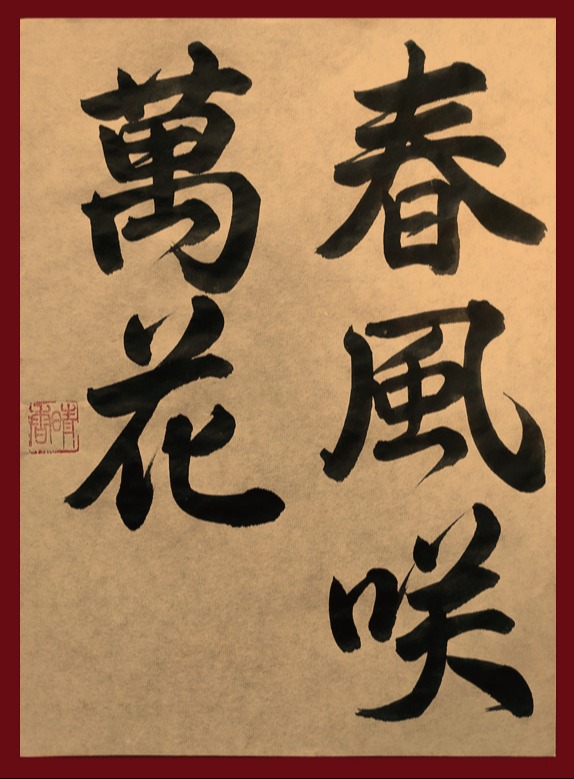 春風咲
萬花
晴香